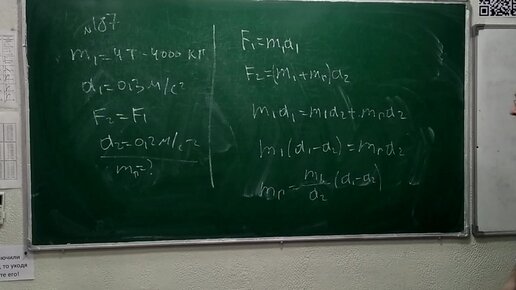 №187
m₁=4т=4000 кг
a₁=0,3 м/с²
F₂=F₁
a₂=0,2 м/с²
mп=?
F₁=m₁a₁
F₂=(m₁+mп)a₂
m₁a₁=m₁a₂+mпa₂
m₁(a₁-a₂)=mпa₂
mп=m₁/a₂(a₁-a₂)
ючили
, то уходя
те его!